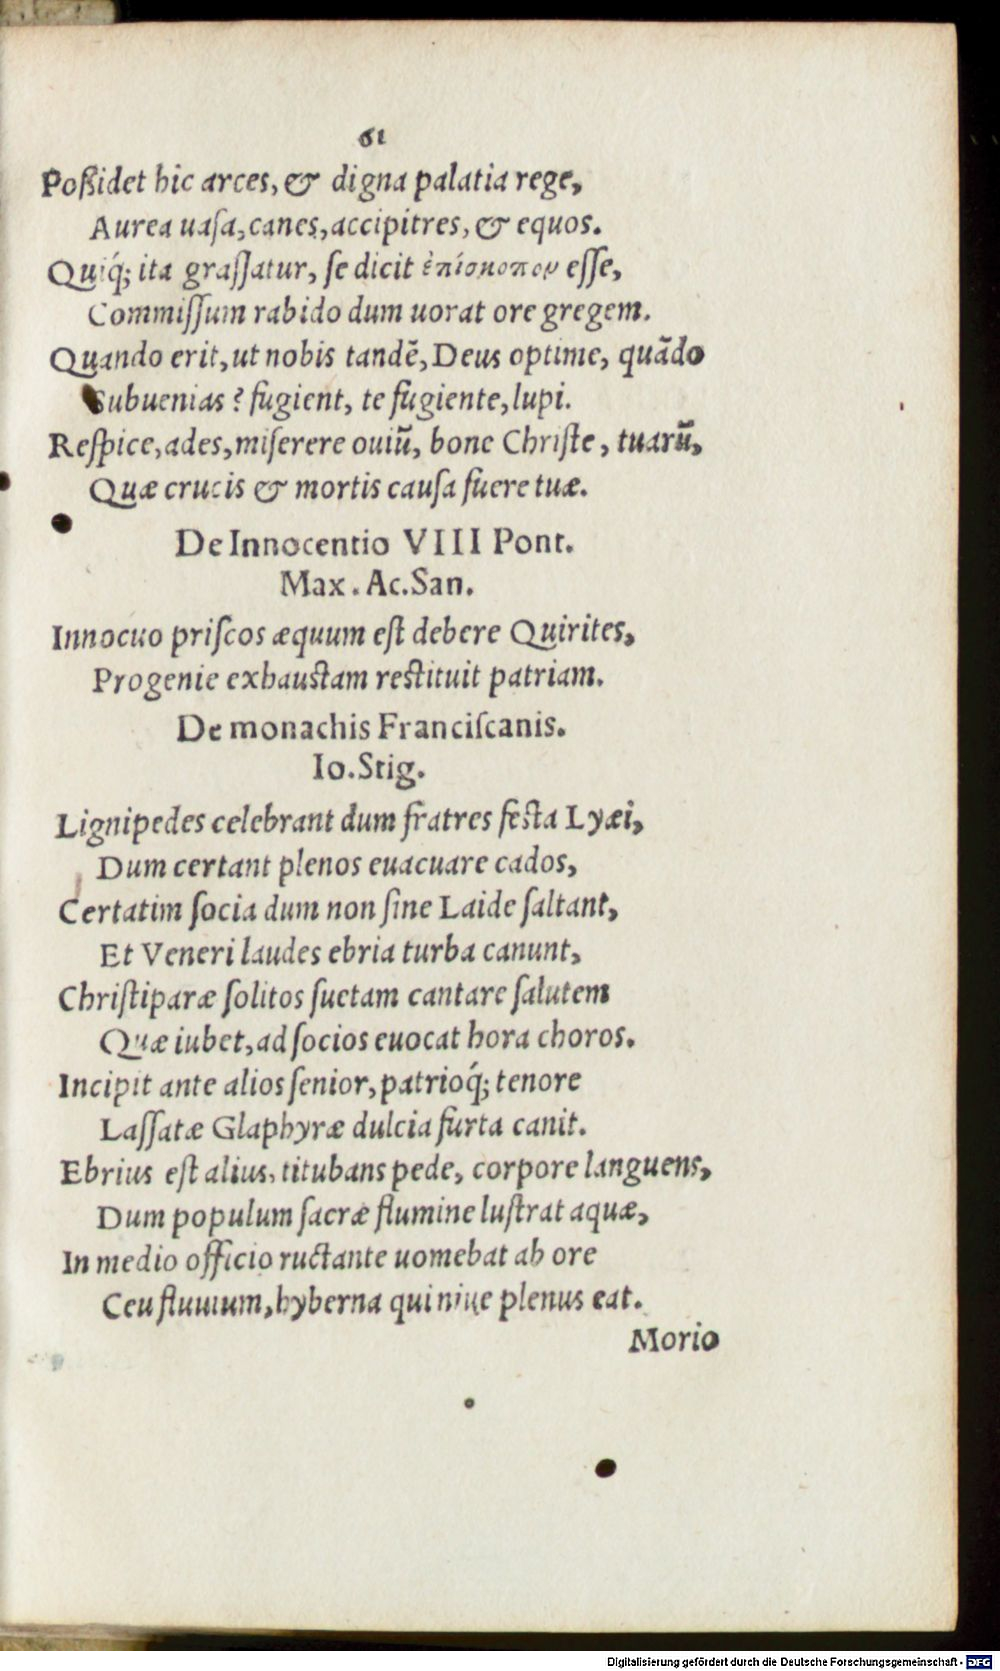 61
Poßidet hic arces, & digna palatia rege,
Aurea uasa, canes, accipitres, & equos.
Quiq́; ita graſſatur, ſe dicit ἐπίσκοπον eſſe,
Commiſſum rabido dum uorat ore gregem.
Quando erit, ut nobis tandẽ, Deus optime, quãdo
Subuenias? fugient, te fugiente, lupi.
Reſpice, ades, miſerere ouiũ, bone Chriſte, tuarũ,
Quæ crucis & mortis cauſa fuere tuæ.
De Innocentio VIII Pont.
Max. Ac. San.
Innocuo priſcos æquum eſt debere Quirites,
Progenie exhauſtam reſtituit patriam.
De monachis Franciſcanis.
Io. Stig.
Lignipedes celebrant dum fratres feſta Lyæi,
Dum certant plenos euacuare cados,
Certatim ſocia dum non ſine Laide ſaltant,
Et Veneri laudes ebria turba canunt,
Chriſtiparæ ſolitos ſuetam cantare ſalutem
Quæ iubet, ad ſocios euocat hora choros.
Incipit ante alios ſenior, patrioq́; tenore
Laſſatæ Glaphyræ dulcia furta canit.
Ebrius eſt alius, titubans pede, corpore languens,
Dum populum ſacræ flumine luſtrat aquæ,
In medio officio ructante uomebat ab ore
Ceu fluuium, hyberna qui niue plenus eat.
Morio
Digitalisierung gefördert durch die Deutsche Forschungsgemeinschaft - DFG